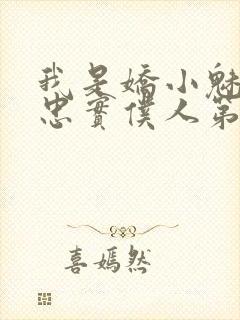 我是嬌小魅
忠實僕人第
喜嫣然